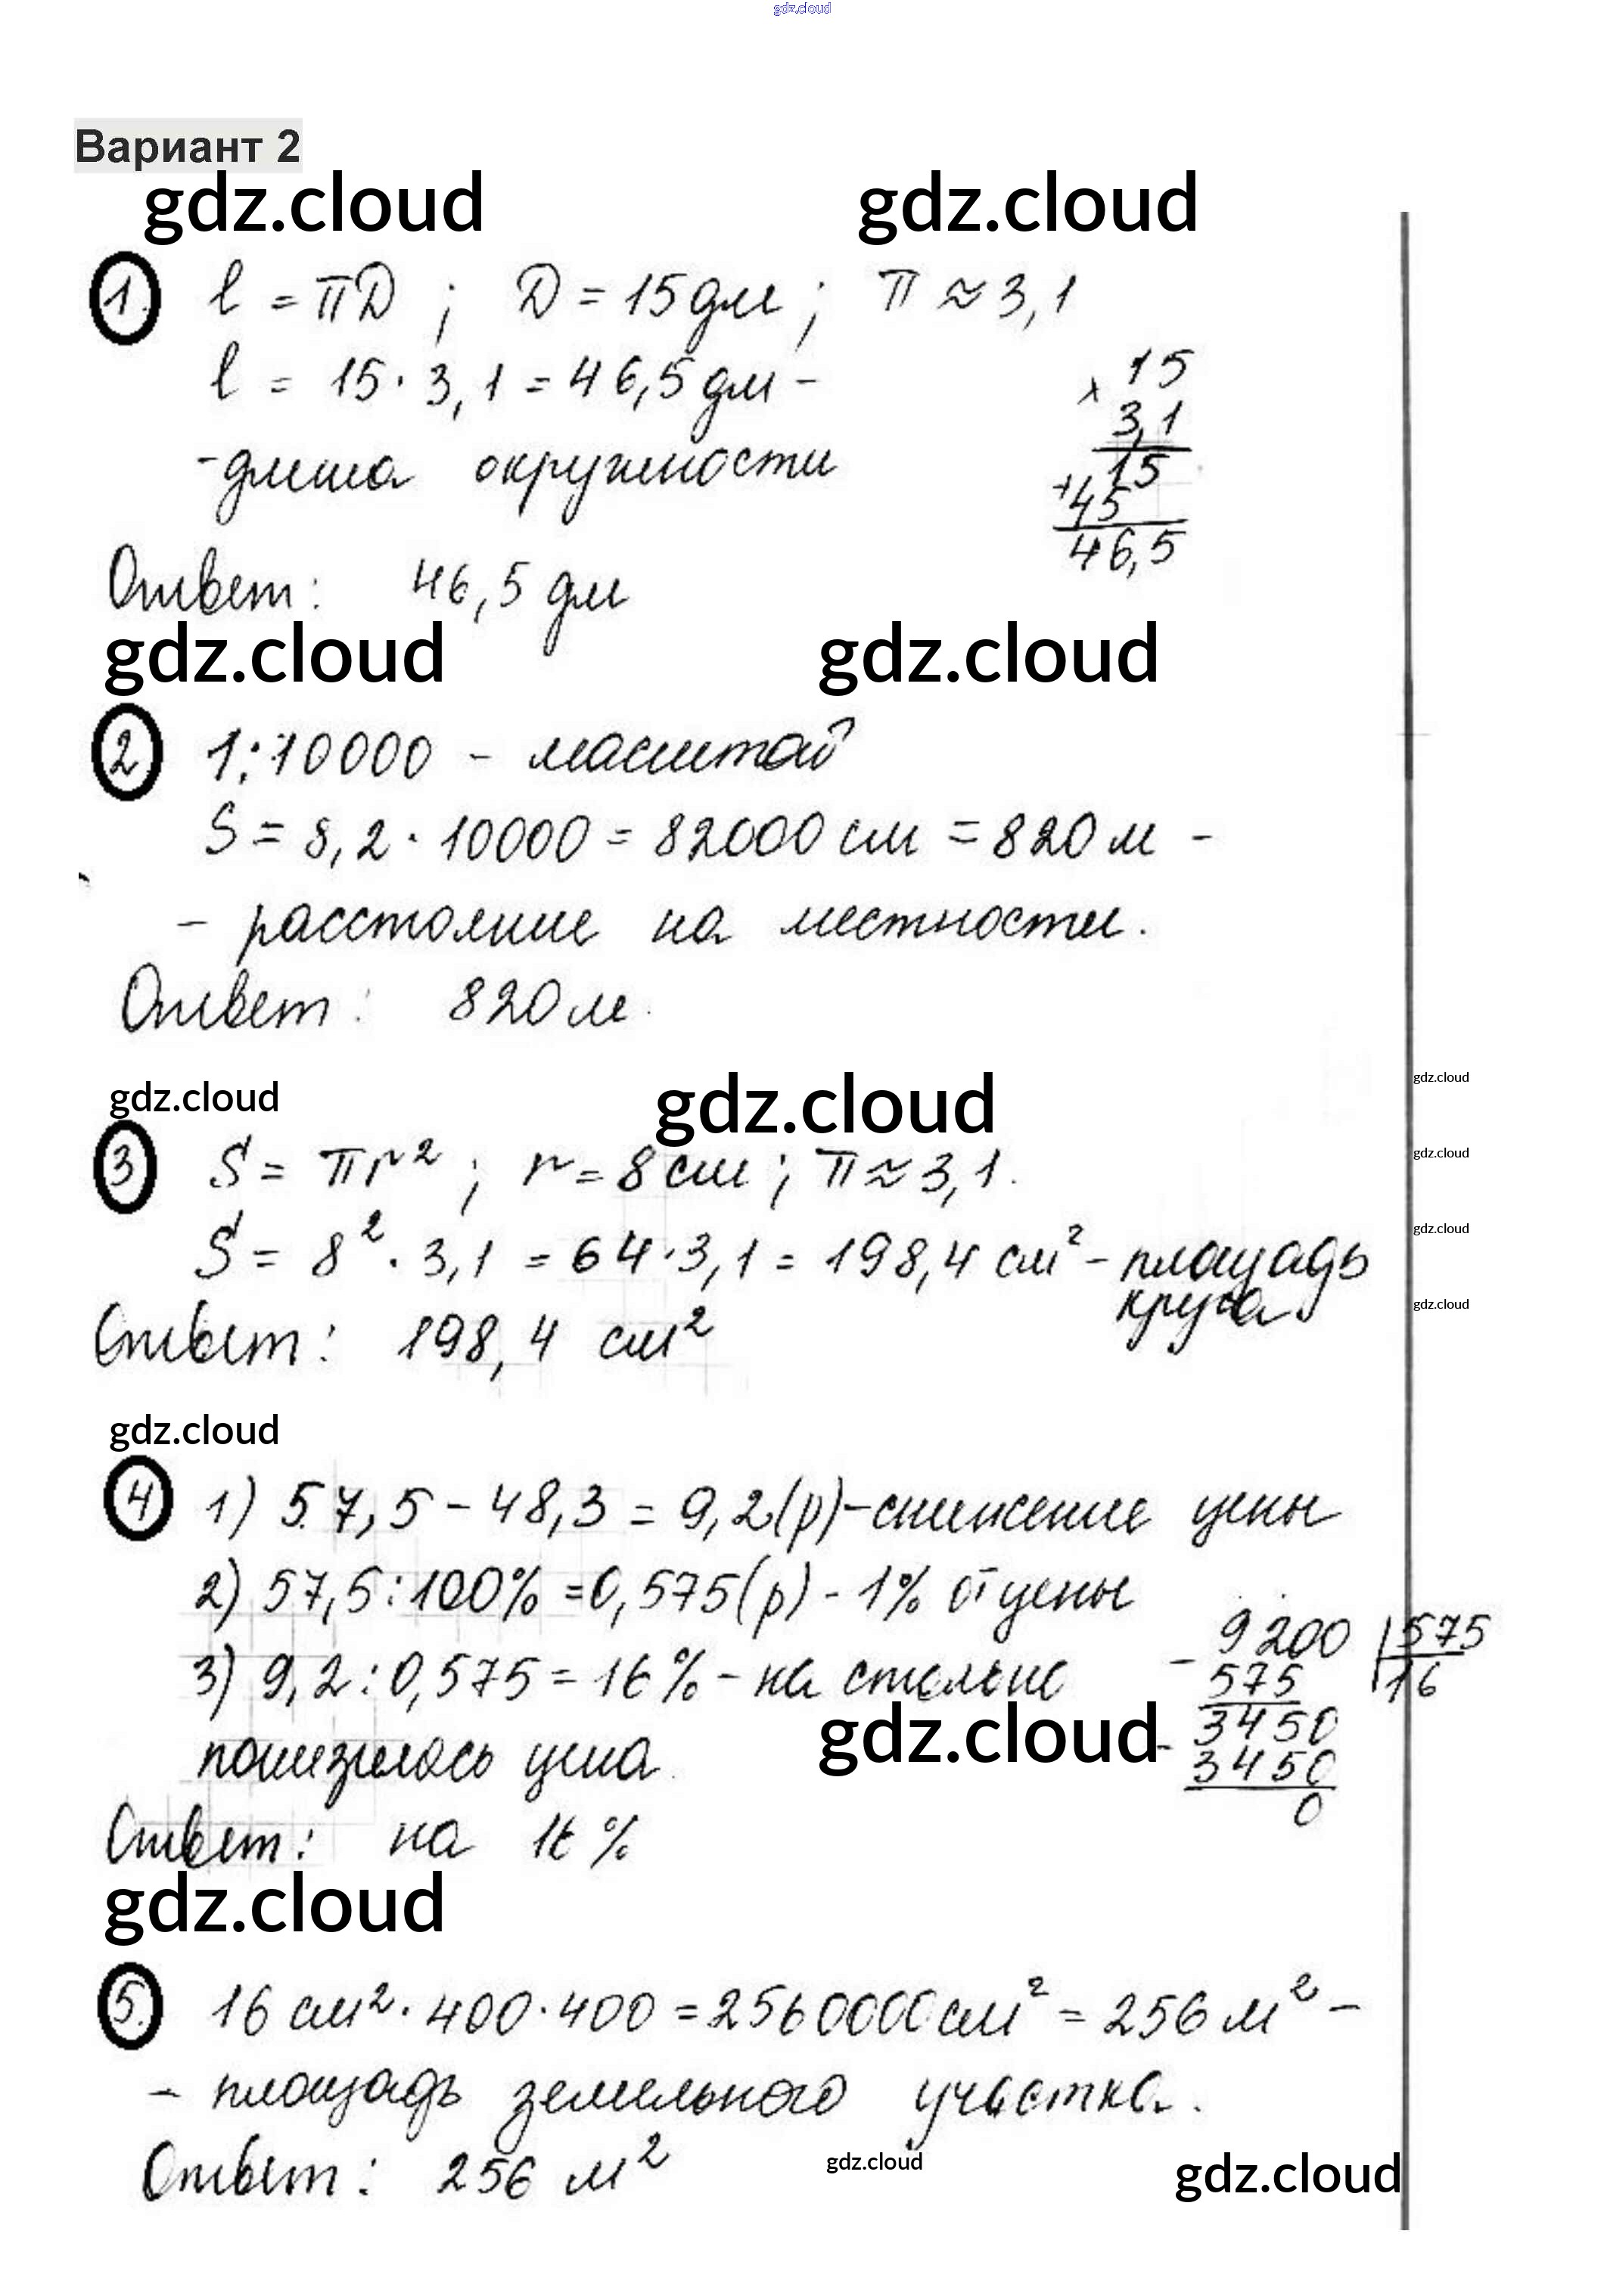 gdz.cloud
Вариант 2
gdz.cloud gdz.cloud
1. l = πD ; D = 15 дм ; π ≈ 3,1
l = 15 · 3,1 = 46,5 дм -
- длина окружности
× 15
3,1
15
+ 45
46,5
Ответ: 46,5 дм
gdz.cloud gdz.cloud
2 1:10000 - масштаб
S = 8,2 · 10000 = 82000 см = 820 м -
- расстояние на местности.
Ответ: 820 м.
gdz.cloud gdz.cloud gdz.cloud
3 S = πr² ; r = 8 см ; π ≈ 3,1.
gdz.cloud
S = 8² · 3,1 = 64 · 3,1 = 198,4 см² - площадь
круга
gdz.cloud
Ответ: 198,4 см²
gdz.cloud
gdz.cloud
4 1) 57,5 - 48,3 = 9,2 (р) - снижение цены
2) 57,5 : 100% = 0,575 (р) - 1% от цены
3) 9,2 : 0,575 = 16% - на столько
понизилась цена.
gdz.cloud
- 9200 | 575
575 16
- 3450
3450
0
Ответ: на 16 %
gdz.cloud
5. 16 см² · 400 · 400 = 2560000 см² = 256 м² -
- площадь земельного участка.
Ответ: 256 м²
gdz.cloud gdz.cloud